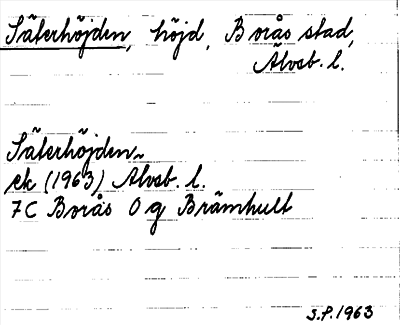 Säterhöjden, höjd, Borås stad,
Älvsb. l.
Säterhöjden
ek (1963) Älvsb. l.
7C Borås 0 g Brämhult
S.P. 1963